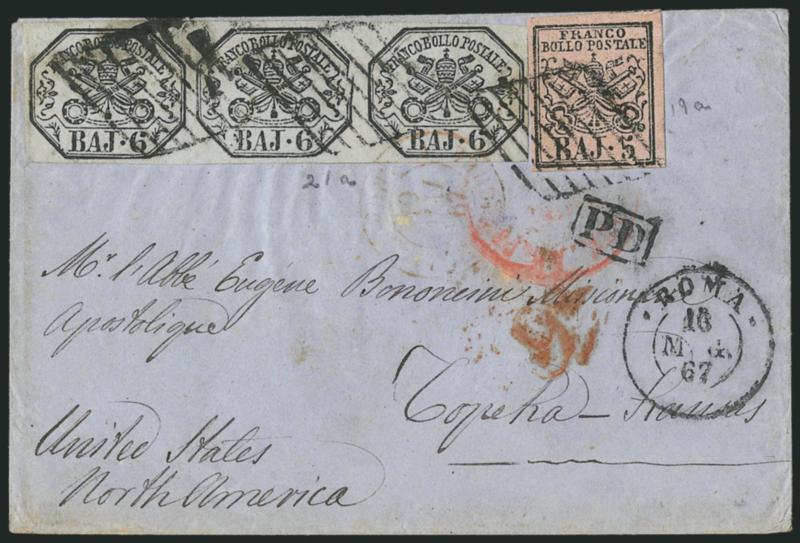 FRANCO BOLLO POSTALE
BAJ·6
FRANCO BOLLO POSTALE
BAJ·6
FRANCO BOLLO POSTALE
BAJ·6
FRANCO
BOLLO POSTALE
BAJ·5
19a
21a
PD
ROMA
16
67
Mr. l'Abbé Eugène Bononcini Missionre
Apostolique
Topeka - Kansas
United States
North America